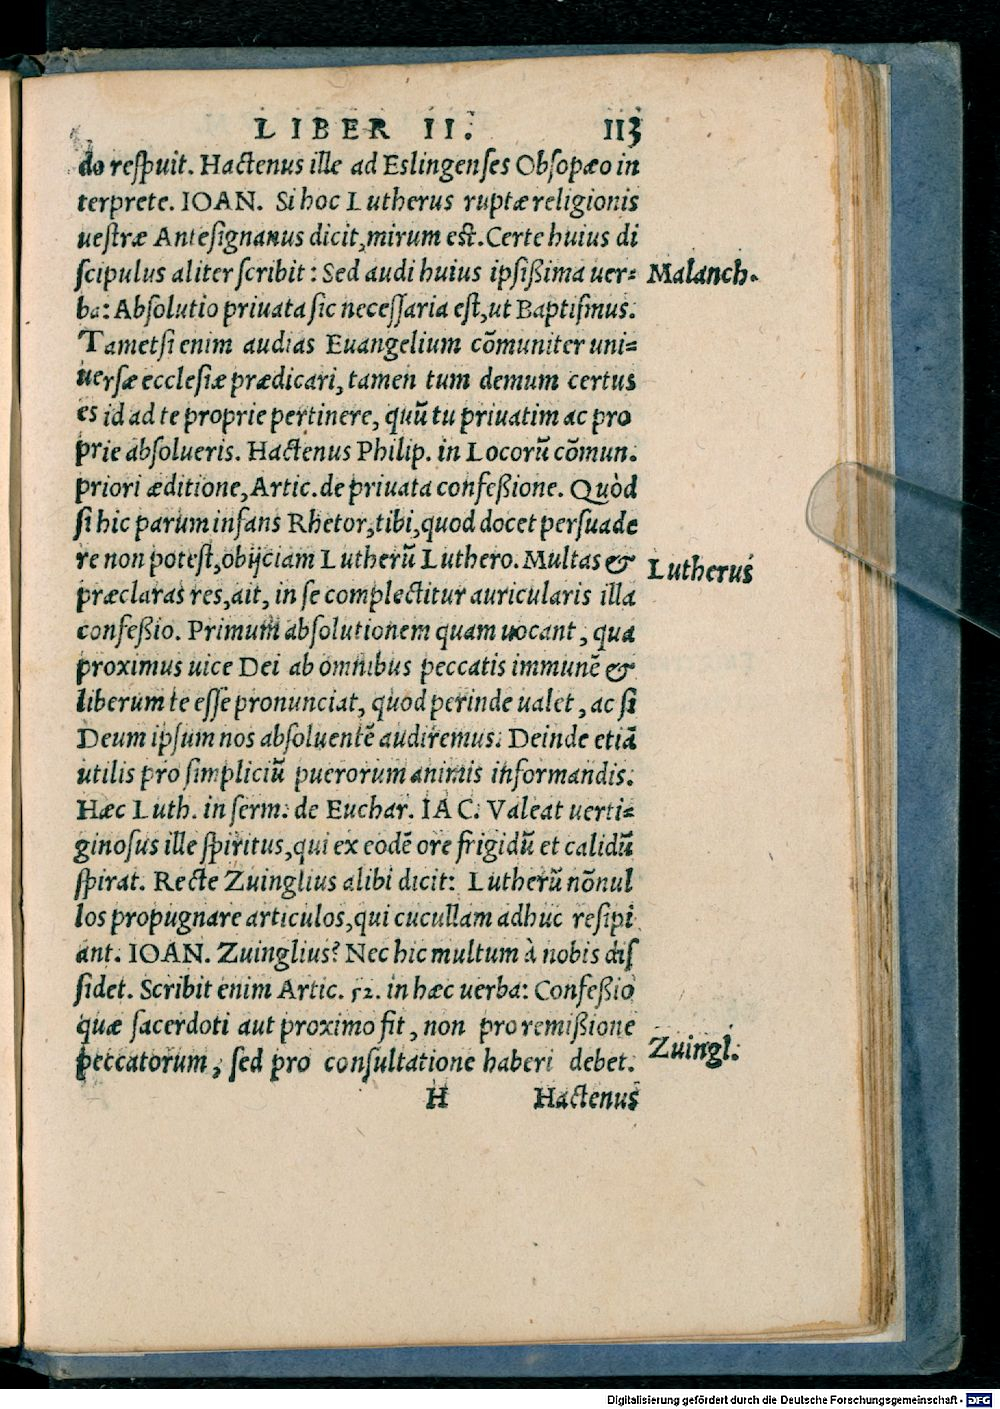 LIBER II. 113
do reſpuit. Hactenus ille ad Eslingenſes Obſopæo in
terprete. IOAN. Si hoc Lutherus ruptæ religionis
ueſtræ Anteſignanus dicit, mirum eſt. Certe huius di
ſcipulus aliter ſcribit: Sed audi huius ipſiſsima uer= Malanch.
ba: Abſolutio priuata ſic neceſſaria eſt, ut Baptiſmus.
Tametſi enim audias Euangelium cōmuniter uni=
uerſæ eccleſiæ prædicari, tamen tum demum certus
es id ad te proprie pertinere, quū tu priuatim ac pro
prie abſolueris. Hactenus Philip. in Locorū cōmun.
priori æditione, Artic. de priuata confeßione. Quòd
ſi hic parum infans Rhetor, tibi, quod docet perſuade
re non poteſt, obijciam Lutherū Luthero. Multas & Lutherus
præclaras res, ait, in ſe complectitur auricularis illa
confeßio. Primum abſolutionem quam uocant, qua
proximus uice Dei ab omnibus peccatis immunē &
liberum te eſſe pronunciat, quod perinde ualet, ac ſi
Deum ipſum nos abſoluentē audiremus. Deinde etiā
utilis pro ſimpliciū puerorum animis informandis.
Hæc Luth. in ſerm. de Euchar. IAC. Valeat uerti=
ginoſus ille ſpiritus, qui ex eodē ore frigidū et calidū
ſpirat. Recte Zuinglius alibi dicit: Lutherū nōnul
los propugnare articulos, qui cucullam adhuc reſipi
ant. IOAN. Zuinglius? Nec hic multum à nobis diſ
ſidet. Scribit enim Artic. 52. in hæc uerba: Confeßio
quæ ſacerdoti aut proximo fit, non pro remißione Zuingl.
peccatorum, ſed pro conſultatione haberi debet.
H Hactenus
Digitalisierung gefördert durch die Deutsche Forschungsgemeinschaft - DFG